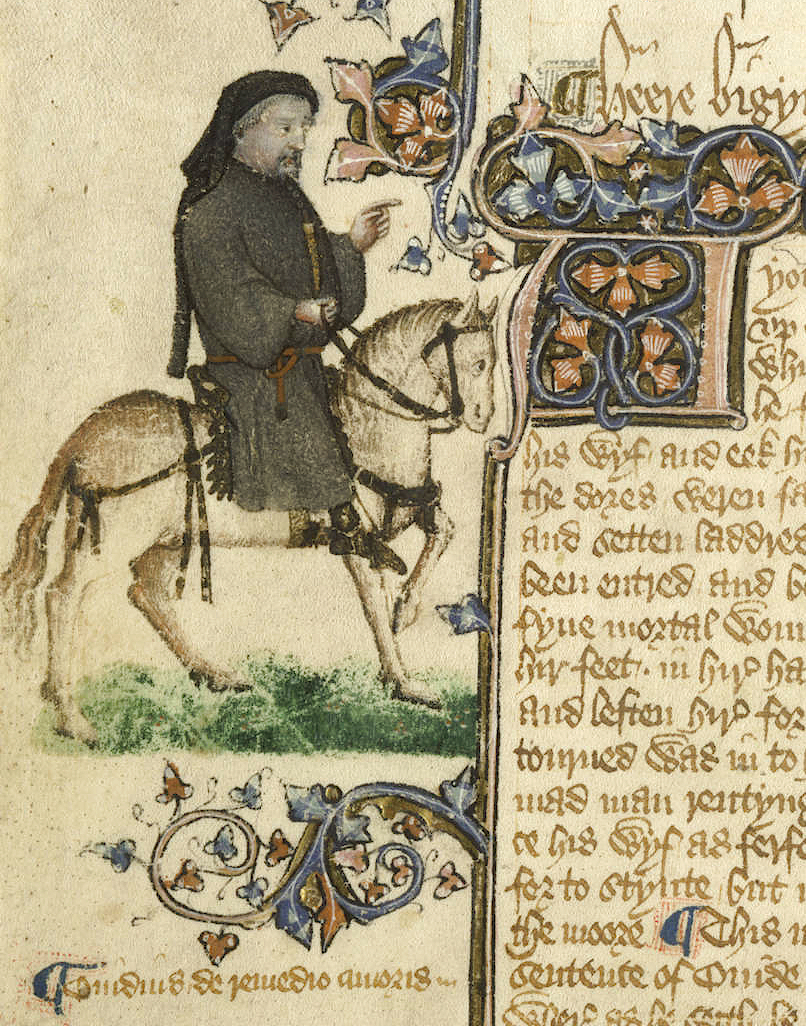 Heere bigyn
his wyf and eek h
the dores weren fa
and setten laddres
been entred and b
fyue mortal woun
hir feet. in hir ha
and leften hir for
tourned was in to
mad man rentyng
te his wyf as ferfo
for to stynte but
the moore ¶ This n
sentence of Ouide
wher as he seith he
¶ Ouidius de remedio amoris